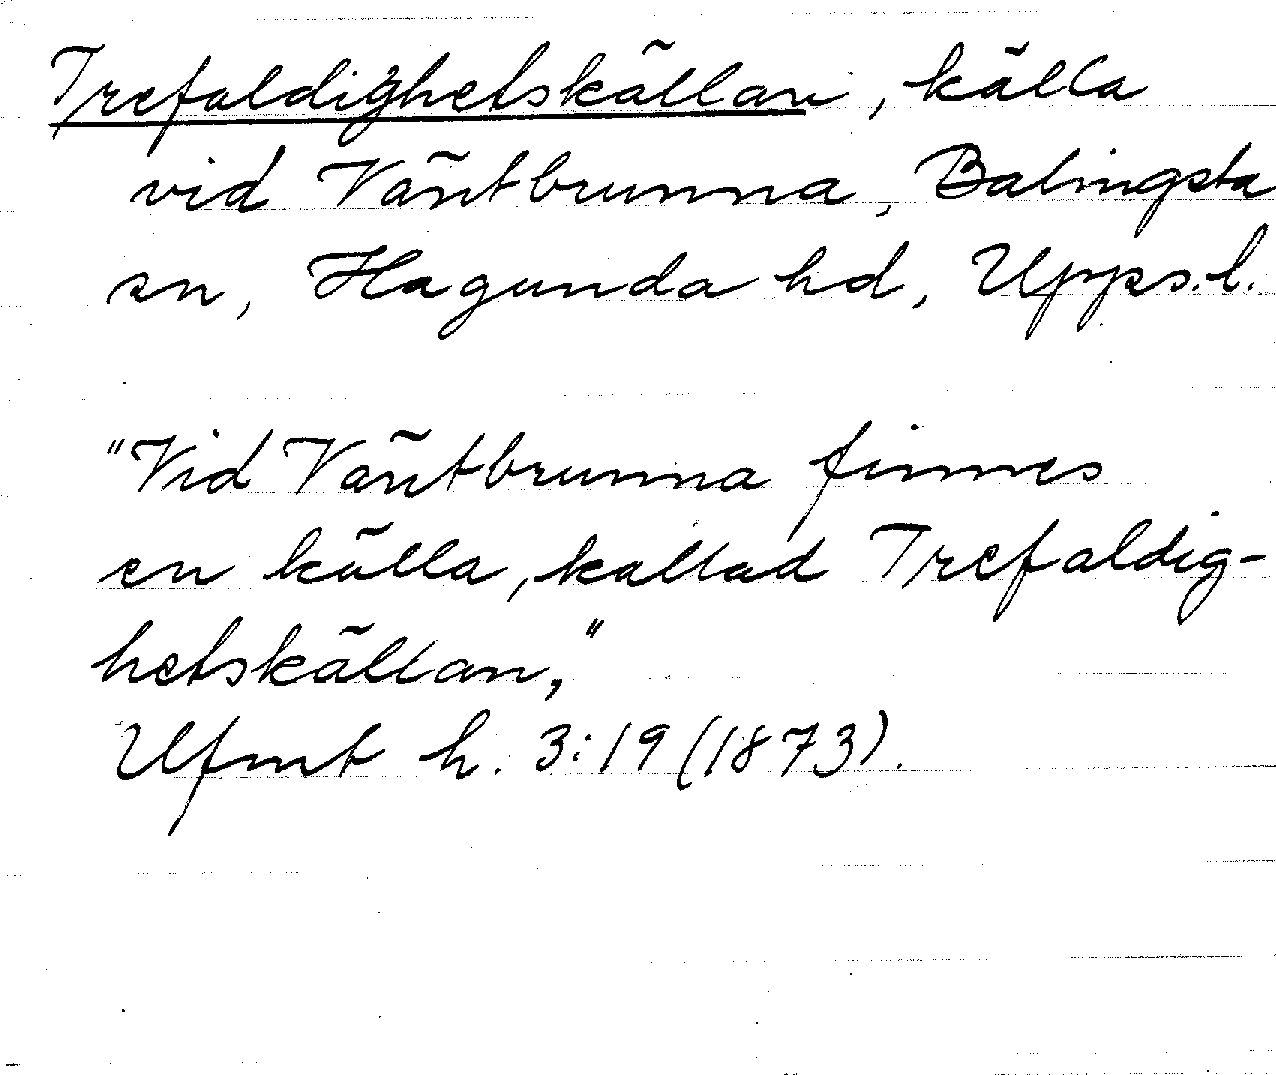 Trefaldighetskällan, källa
vid Väntbrunna, Balingsta
sn, Hagunda hd, Upps.l.
"Vid Väntbrunna finnes
en källa, kallad Trefaldig-
hetskällan,"
Ufmt h. 3:19 (1873).